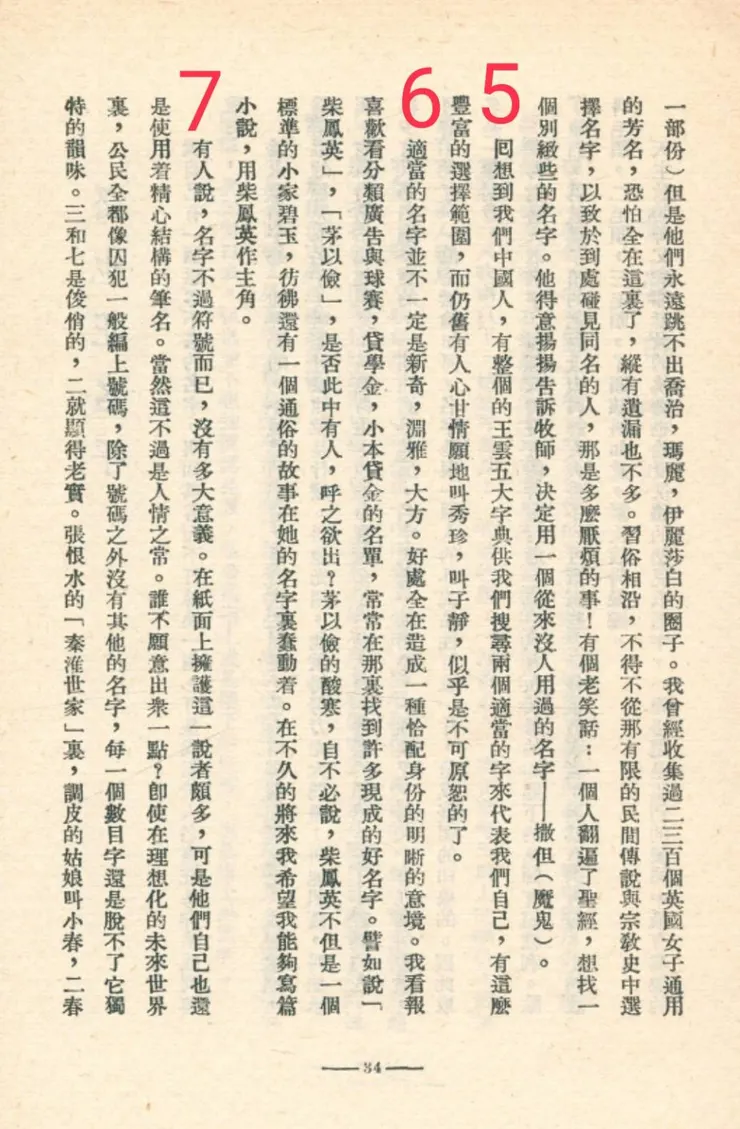 一部份）但是他們永遠跳不出喬治，瑪麗，伊麗莎白的圈子。我曾經收集過二三百個英國女子通用
的芳名，恐怕全在這裏了，縱有遺漏也不多。習俗相沿，不得不從那有限的民間傳說與宗教史中選
擇名字，以致於到處碰見同名的人，那是多麼厭煩的事！有個老笑話：一個人翻遍了聖經，想找一
個別緻些的名字。他得意揚揚告訴牧師，決定用一個從來沒人用過的名字——撒但（魔鬼）。
5
回想到我們中國人，有整個的王雲五大字典供我們搜尋兩個適當的字來代表我們自己，有這麼
豐富的選擇範圍，而仍舊有人心甘情願地叫秀珍，叫子靜，似乎是不可原恕的了。
6
適當的名字並不一定是新奇，淵雅，大方。好處全在造成一種恰配身份的明晰的意境。我看報
喜歡看分類廣告與球賽，貸學金，小本貸金的名單，常常在那裏找到許多現成的好名字。譬如說「
柴鳳英」，「茅以儉」，是否此中有人，呼之欲出？茅以儉的酸寒，自不必說，柴鳳英不但是一個
標準的小家碧玉，彷彿還有一個通俗的故事在她的名字裏蠢動着。在不久的將來我希望我能夠寫篇
小說，用柴鳳英作主角。
7
有人說，名字不過符號而已，沒有多大意義。在紙面上擁護這一說者頗多，可是他們自己也還
是使用着精心結構的筆名。當然這不過是人情之常。誰不願意出衆一點？卽使在理想化的未來世界
裏，公民全都像囚犯一般編上號碼，除了號碼之外沒有其他的名字，每一個數目字還是脫不了它獨
特的韻味。三和七是俊俏的，二就顯得老實。張恨水的「秦淮世家」裏，調皮的姑娘叫小春，二春
—— 34 ——